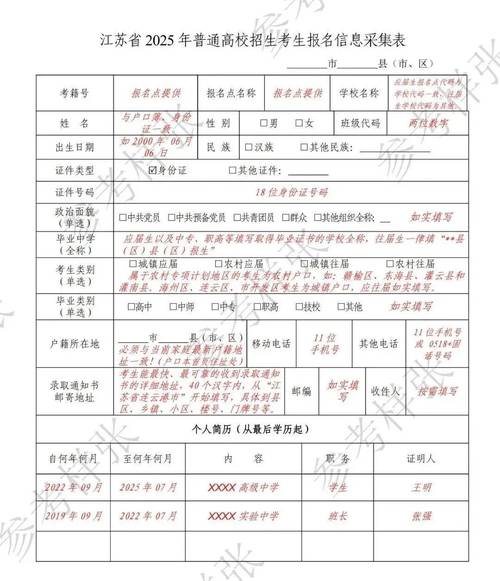 江苏省 2025 年普通高校招生考生报名信息采集表
________市______县（市、区）
考籍号 报名点提供 报名点名称 报名点提供 学校名称 应届生报名点代码与学校代码一致，往届生学校代码为其他。
姓 名 与户口簿、身份证一致 性 别 □男 □女 班级代码 两位数字
出生日期 如 2000 年 06 月 06 日 民 族 □汉族 □其他民族：
证件类型 ☑身份证 □其他证件：
证件号码 18 位身份证号码
政治面貌（单选） □中共党员 □中共预备党员 □共青团员 □群众 □其他组织全称： 如实填写
毕业中学（全称） 应届生以及中专、职高等填写取得毕业证书的学校全称，往届生一律填“**县（区）县（区）报生”
考生类别（单选） □城镇应届 □农村应届 □城镇往届 □农村往届
属于农村专项计划地区的考生为农村户口，如：赣榆区、东海县、灌云县和灌南县，海州区、连云区、市开发区考生为城镇户口，应往届如实填写。
毕业类别（单选） □高中 □中师 □中专 □职高 □技校 □其他 如实填写
户籍所在地 ____市____县（市、区） 必须与当前家庭最新户籍地址一致！（户口本首页住址处） 移动电话 11 位手机号 其他电话 11 位手机号或 0518+固话号码
录取通知书邮寄地址 考生能最快、最可靠的收到录取通知书的详细地址，40 个汉字内，从“江苏省连云港市”开始填写，具体到县区、乡镇、小区、楼号、门牌号等。 邮编 如实填写 收件人 按需填写
个人简历（从最后学历起）
自何年何月 至何年何月 内 容 职 务 证明人
2022 年 09 月 2025 年 07 月 XXXX 高级中学 学生 王明
2019 年 09 月 2022 年 07 月 XXXX 实验中学 班长 张强
参考样张